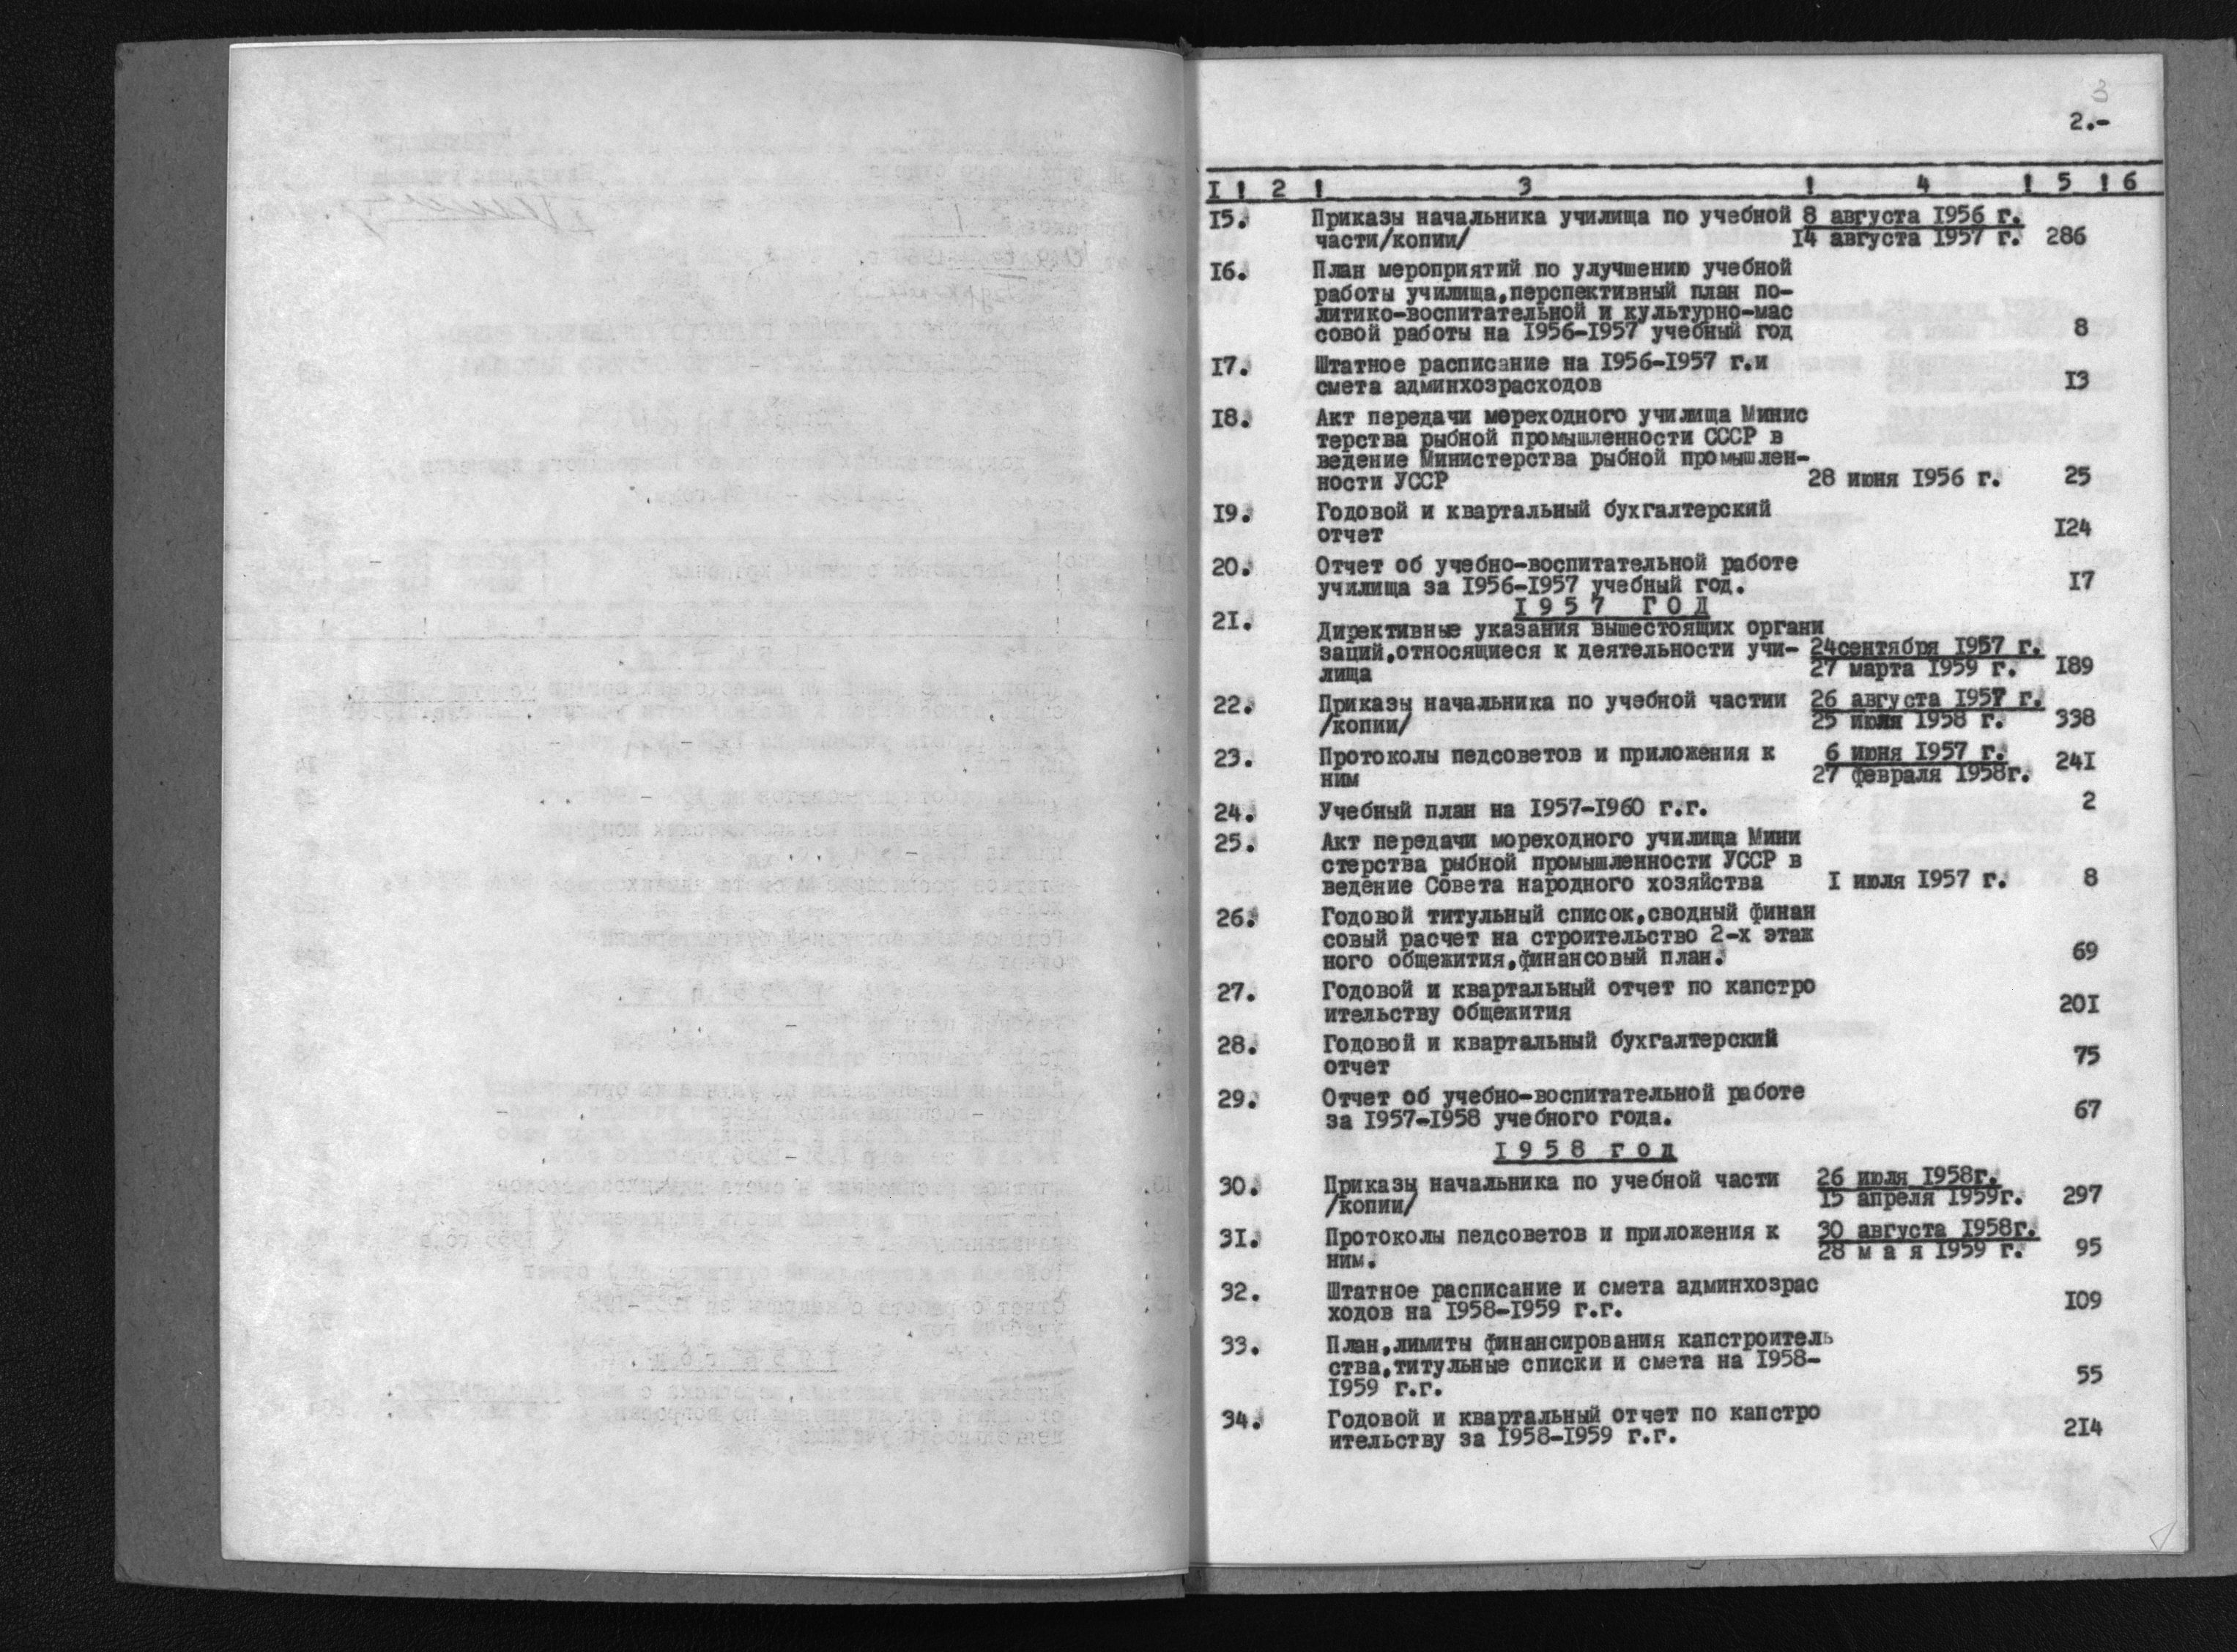 3
2.-
I ! 2 ! 3 ! 4 ! 5 ! 6
15. Приказы начальника училища по учебной 8 августа 1956 г.
части/копии/ 14 августа 1957 г. 286
16. План мероприятий по улучшению учебной
работы училища,перспективный план по-
литико-воспитательной и культурно-мас
совой работы на 1956-1957 учебный год 8
17. Штатное расписание на 1956-1957 г.и
смета админхозрасходов 13
18. Акт передачи мореходного училища Минис
терства рыбной промышленности СССР в
ведение Министерства рыбной промышлен-
ности УССР 28 июня 1956 г. 25
19. Годовой и квартальный бухгалтерский
отчет 124
20. Отчет об учебно-воспитательной работе
училища за 1956-1957 учебный год. 17
1 9 5 7 Г О Д
21. Директивные указания вышестоящих органи
заций,относящиеся к деятельности учи- 24сентября 1957 г.
лища 27 марта 1959 г. 189
22. Приказы начальника по учебной частии 26 августа 1957 г.
/копии/ 25 июля 1958 г. 338
23. Протоколы педсоветов и приложения к 6 июня 1957 г.
ним 27 февраля 1958г. 241
24. Учебный план на 1957-1960 г.г. 2
25. Акт передачи мореходного училища Мини
стерства рыбной промышленности УССР в
ведение Совета народного хозяйства 1 июля 1957 г. 8
26. Годовой титульный список,сводный финан
совый расчет на строительство 2-х этаж
ного общежития,финансовый план. 69
27. Годовой и квартальный отчет по капстро
ительству общежития 201
28. Годовой и квартальный бухгалтерский
отчет 75
29. Отчет об учебно-воспитательной работе
за 1957-1958 учебного года. 67
1 9 5 8 г о д
30. Приказы начальника по учебной части 26 июля 1958г.
/копии/ 15 апреля 1959г. 297
31. Протоколы педсоветов и приложения к 30 августа 1958г.
ним. 28 м а я 1959 г. 95
32. Штатное расписание и смета админхозрас
ходов на 1958-1959 г.г. 109
33. План,лимиты финансирования капстроитель
ства,титульные списки и смета на 1958-
1959 г.г. 55
34. Годовой и квартальный отчет по капстро
ительству за 1958-1959 г.г. 214